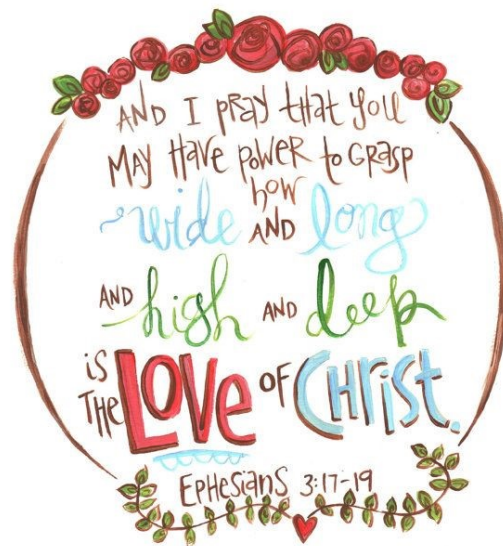 AND I PRAY tHAt YOU
MAY HAVE POWER to GRASP
how
wide AND long
AND high AND deep
is THE LOVE OF CHRist.
EPHESIANS 3:17-19